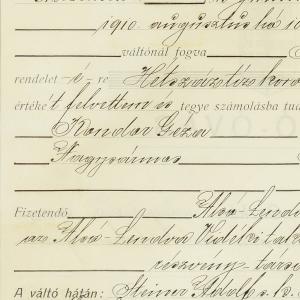 1910. augusztus hó 10
váltónál fogva
rendelet -é- re Hétszáztíz koro
értéke't felvettem és tegye számolásba tud
Kondor Géza
Nagysármás
Fizetendő Alsó-Lendv
az Alsó-Lendva Vidéki tak
részvény-társa
A váltó hátán: Steiner Adolf s. k.